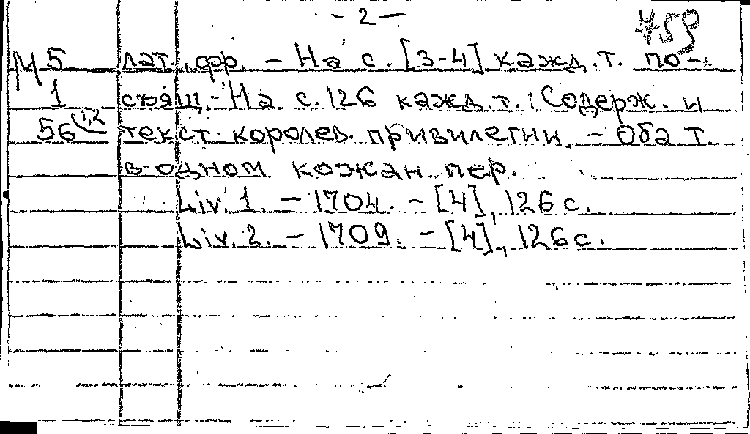 - 2 -
759
М 5 лат., фр. - На с. [3-4] кажд. т. по-
1 сvящ. - На с. 126 кажд. т.: Содерж. и
56 IR текст королев. привилегии. - Оба т.
в одном кожан. пер.
Liv. 1. - 1704. - [4], 126 с.
Liv. 2. - 1709. - [4], 126 с.